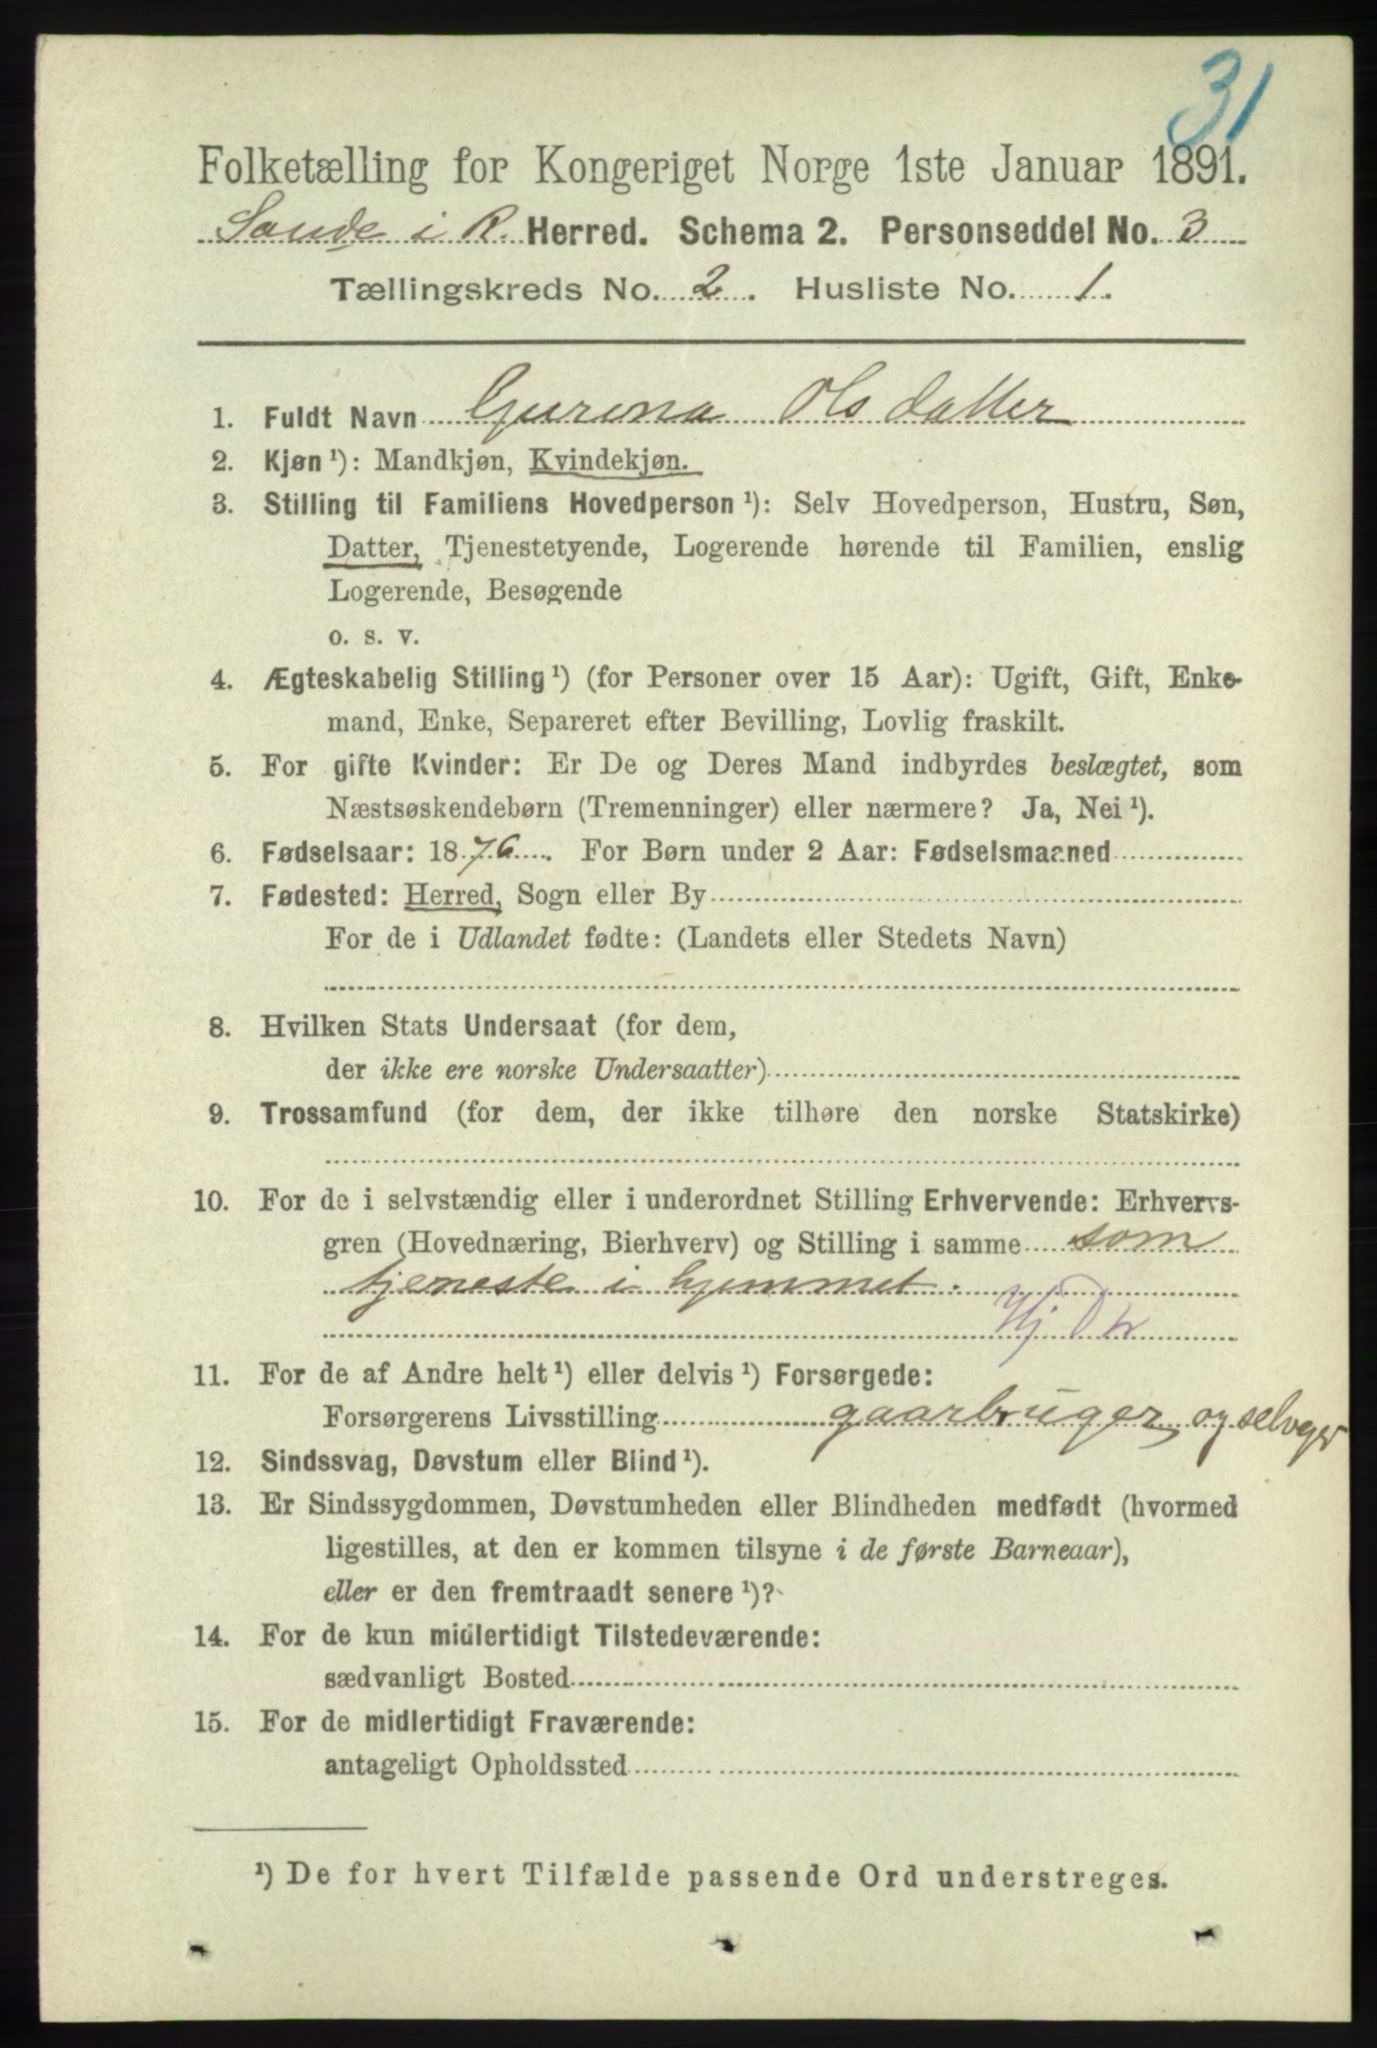 31
Folketælling for Kongeriget Norge 1ste Januar 1891.
Sande i R. Herred. Schema 2. Personseddel No. 3
Tællingskreds No. 2. Husliste No. 1.
1. Fuldt Navn Gurina Olsdatter
2. Kjøn ¹): Mandkjøn, Kvindekjøn.
3. Stilling til Familiens Hovedperson ¹): Selv Hovedperson, Hustru, Søn,
Datter, Tjenestetyende, Logerende hørende til Familien, enslig
Logerende, Besøgende
o. s. v.
4. Ægteskabelig Stilling ¹) (for Personer over 15 Aar): Ugift, Gift, Enke-
mand, Enke, Separeret efter Bevilling, Lovlig fraskilt.
5. For gifte Kvinder: Er De og Deres Mand indbyrdes beslægtet, som
Næstsøskendebørn (Tremenninger) eller nærmere? Ja, Nei ¹).
6. Fødselsaar: 1876. For Børn under 2 Aar: Fødselsmaaned
7. Fødested: Herred, Sogn eller By
For de i Udlandet fødte: (Landets eller Stedets Navn)
8. Hvilken Stats Undersaat (for dem,
der ikke ere norske Undersaatter)
9. Trossamfund (for dem, der ikke tilhøre den norske Statskirke)
10. For de i selvstændig eller i underordnet Stilling Erhvervende: Erhvervs-
gren (Hovednæring, Bierhverv) og Stilling i samme som
tjeneste i hjemmet.
Hj Dtr
11. For de af Andre helt ¹) eller delvis ¹) Forsørgede:
Forsørgerens Livsstilling gaarbruger og selveger
12. Sindssvag, Døvstum eller Blind ¹).
13. Er Sindssygdommen, Døvstumheden eller Blindheden medfødt (hvormed
ligestilles, at den er kommen tilsyne i de første Barneaar),
eller er den fremtraadt senere ¹)?
14. For de kun midlertidigt Tilstedeværende:
sædvanligt Bosted
15. For de midlertidigt Fraværende:
antageligt Opholdssted
¹) De for hvert Tilfælde passende Ord understreges.